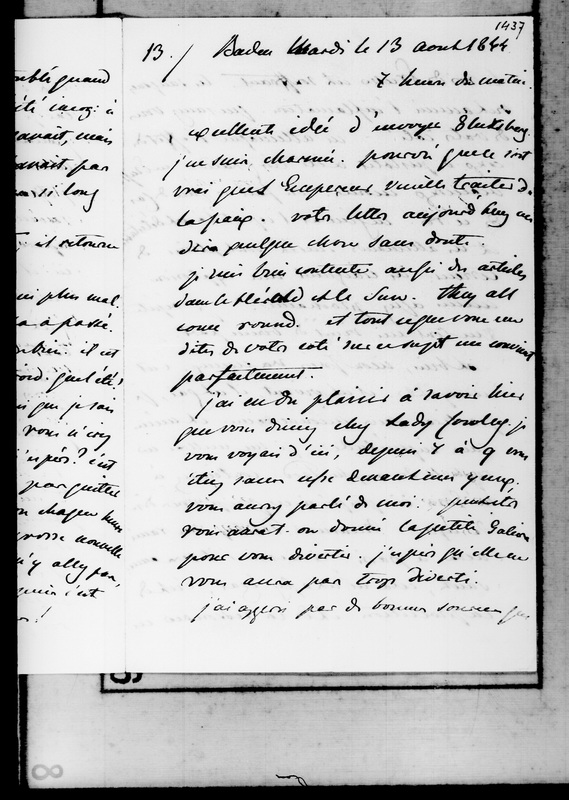 1437
13. / Baden Mardi le 13 aout 1844
7 heures du matin.
excellente idée d'envoyer Glucksberg.
j'en suis charmée. pourvu que ce soit
vrai que l'Empereur veuille traiter de
la paix. votre lettre aujourd'huy me
dira quelque chose sans doute.
je suis bien contente aussi des articles
dans le Herald et le Sun. they all
come round. et tout ce que vous me
dites de votre coté sur ce sujet me convient
parfaitement.
j'ai eu du plaisir à savoir hier
que vous diniez chez Lady Cowley. je
vous voyais d'ici, depuis 7 à 9 vous
étiez sans cesse devant mes yeux.
vous aurez parlé de moi. peutetre
vous aurat-on donné la petite
pour vous divertir. j'espère qu'elle ne
vous aura pas trop diverti.
j'ai appris par de bonnes sources que
quand
à
avait, mais
par
si long
il retourne
plus mal.
a passé.
il est
que je suis
vous n'
c'est
par
grosse nouvelle
c'est